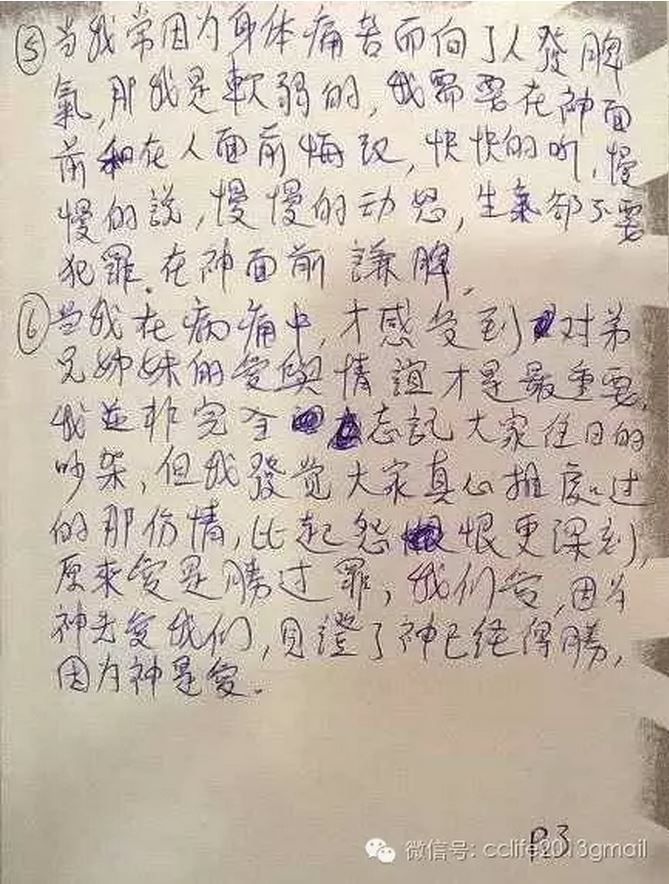 ⑤当我常因为身体痛苦而向了人發脾
氣,那我是軟弱的,我需要在神面
前和在人面前悔改,快快的听,慢
慢的説,慢慢的动怒,生氣卻不要
犯罪.在神面前 謙脾.
⑥当我在病痛中,才感受到对弟
兄姊妹的愛與情誼才是最重要,
我並非完全忘記大家往日的
吵架,但我發觉大家真心推度过
的那份情,比起怨恨更深刻,
原來愛是勝过罪,我们愛,因为
神先愛我们,見證了神已经得勝,
因为神是愛.
P.3
微信号: cclife2013gmail